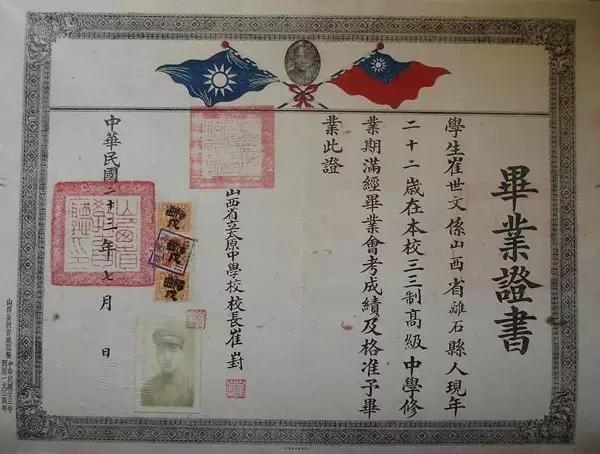 畢業證書
學生崔世文係山西省離石縣人現年
二十二歲在本校三三制高級中學修
業期滿經畢業會考成績及格准予畢
業此證
山西省立太原中學校校長崔封
中華民國二十三年七月 日